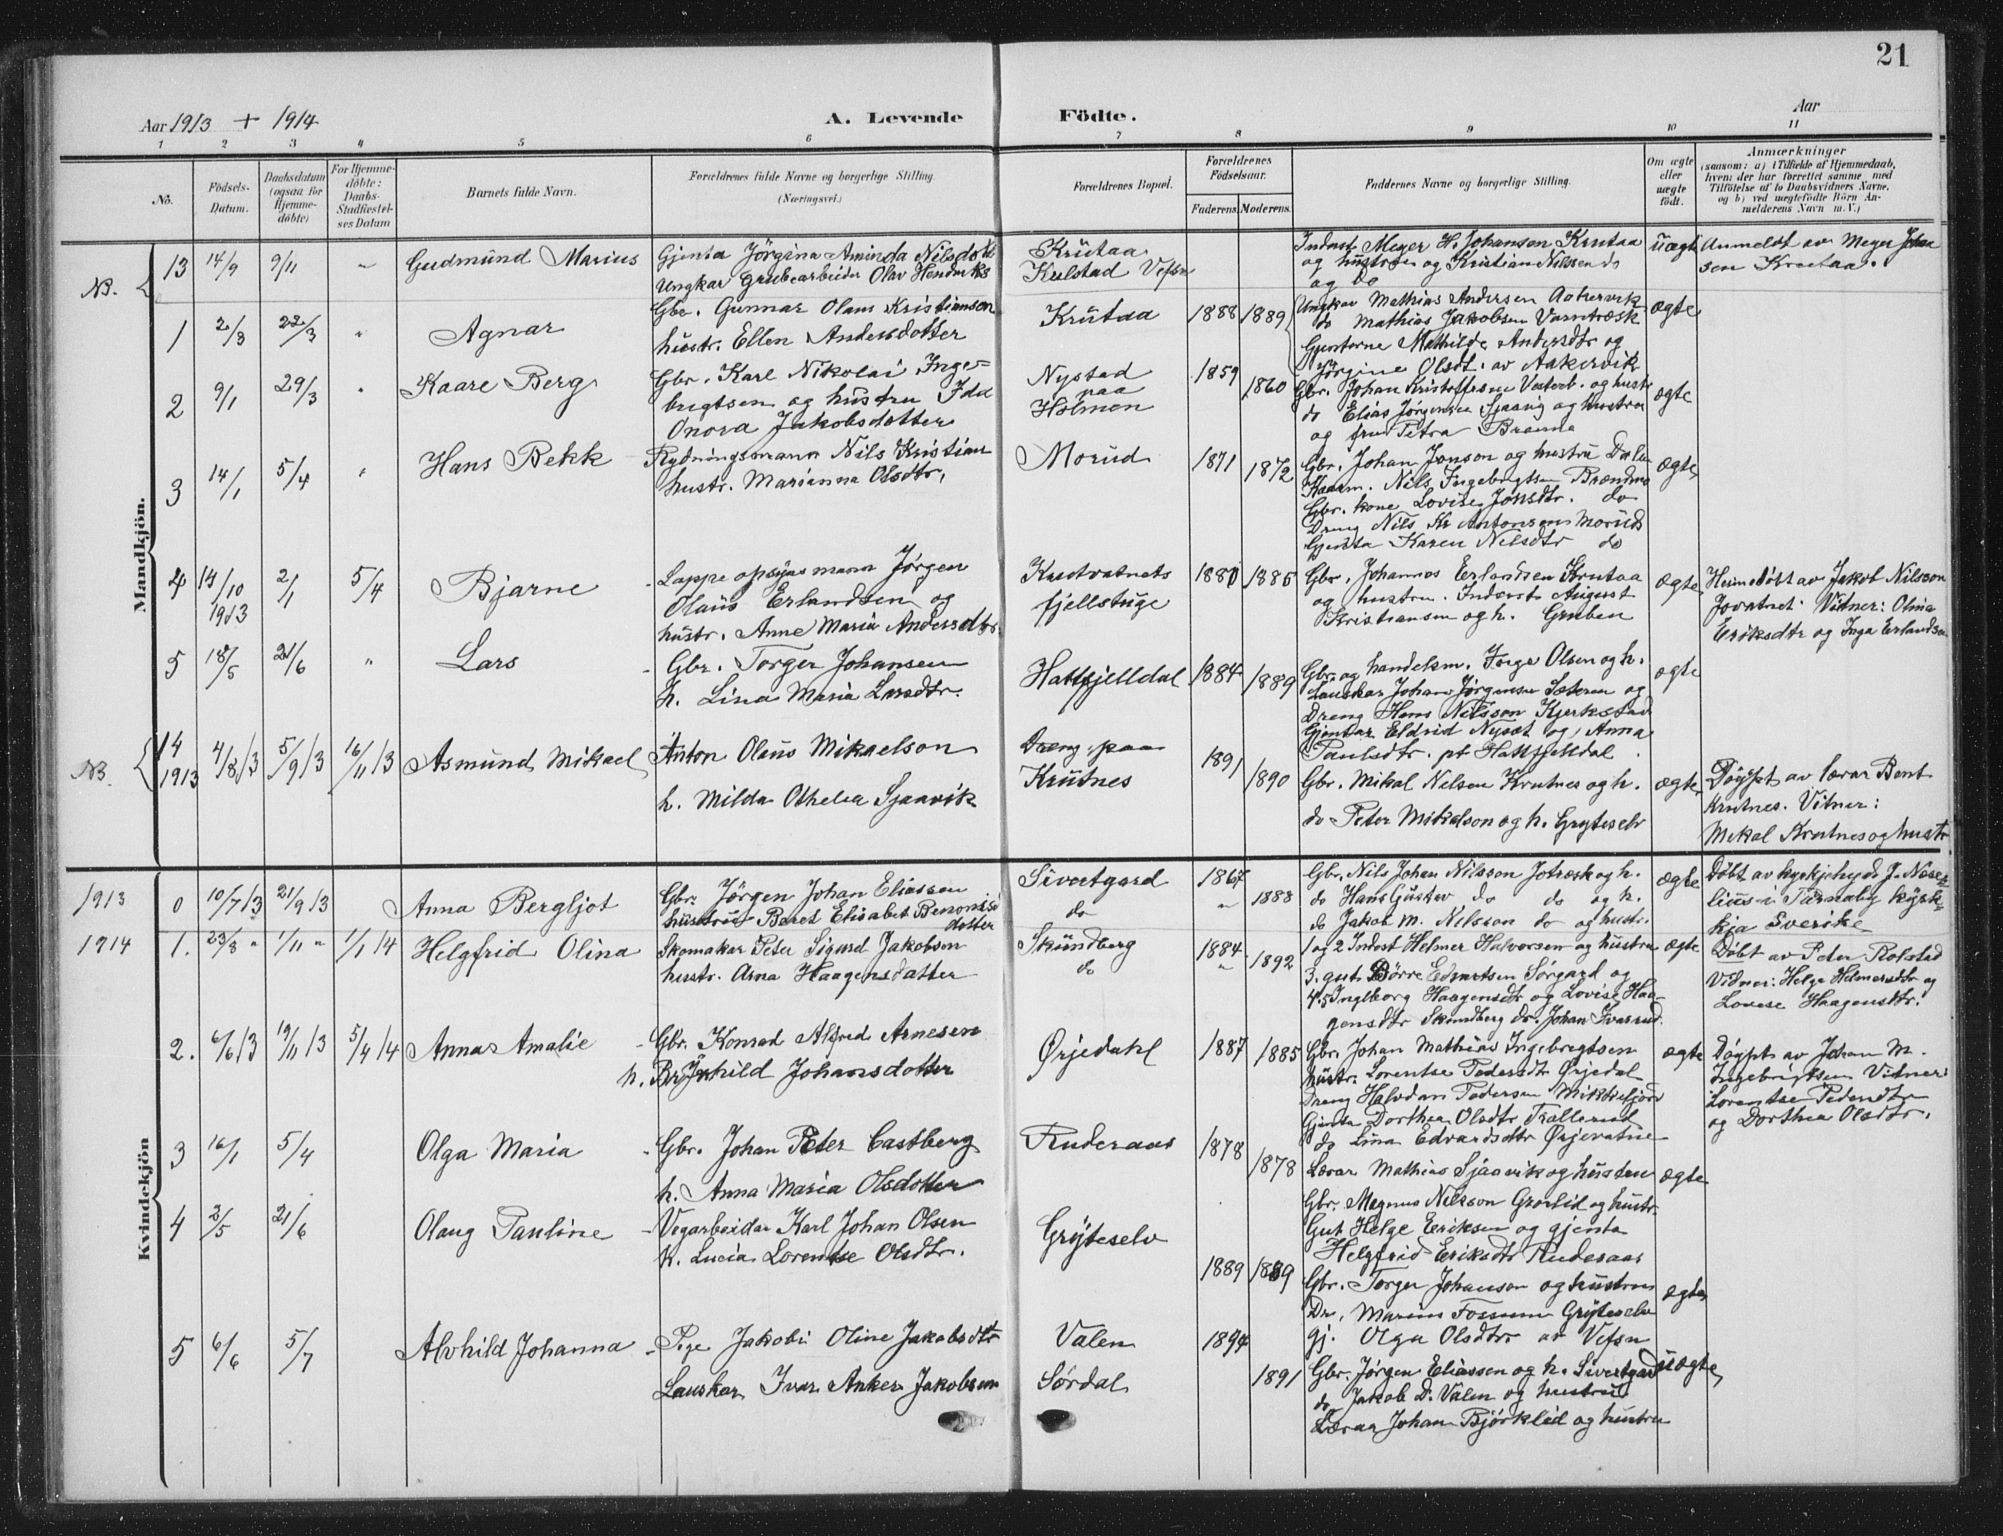 21
Aar 1913 + 1914
A. Levende Födte.
Aar
1 2 3 4 5 6 7 8 9 10 11
No.
Födsels-Datum.
Daabsdatum (ogsaa for Hjemme-döbte)
For Hjemme-döbte: Daabs-Stadfæstel-ses Datum
Barnets fulde Navn.
Forældrenes fulde Navne og borgerlige Stilling.
(Næringsvei.)
Forældrenes Bopæl.
Forældrenes Födselsaar.
Faderens. Moderens.
Faddernes Navne og borgerlige Stilling.
Om ægte eller uægte födt.
Anmærkninger
(saasom: a) i Tilfælde af Hjemmedaab, hvem der har forrettet samme med Tilföielse af to Daabsvidners Navne, og b) ved uegtefödte Börn An-melderens Navn m. V.)
Mandkjön.
NB. 13 14/9 9/11 " Gudmund Marius
Gjenta Jörgina Aminda Nilsdotr
Ungkar Grubearbeider Olav Hendriks
Krutaa
Kulstad Vefsn
Inderst Meyer H. Johansen Krutaa
og hustru og Kristian Nilssen do
og do
uægte
Anmeldt av Meyer Johan
sen Krutaa.
1 2/3 22/3 " Agnar
Gbr. Gunnar Olaus Kristiansen
hustr. Ellen Andersdotter
Krutaa 1888 1889
Ungkar Mathias Andersen Aakervik
do Mathias Jakobsen Varntræsk
Gjentorne Mathilde Andersdtr og
Jörgine Olsdt. av Aakervik
ægte
2 9/1 29/3 " Kaare Berg
Gbr. Karl Nikolai Inge-
brigtsen og hustru Ida
Onora Jakobsdotter
Nystad
paa
Holmen
1859 1860
Gbr. Johan Kristoffersen Vesterb. og hustr
do Elias Jörgensen Sjaavig og hustru
og fru Petra Brenna
ægte
3 14/1 5/4 " Hans Bekk
Rydningsmann Nils Kristian
hustr. Marianna Olsdtr.
Morud 1871 1872
Gbr. Johan Jonson og hustru
Nils Ingebrigtsen Brændmo
Gbr. kone Lovise Jonsdtr. do
Dreng Nils Kr Antonsen Morud
Gjenta Karen Nilsdtr do
ægte
4 14/10 1913 2/1 5/4 Bjarne
Lappeopsynsmann Jörgen
Olaus Erlandsen og
hustr. Anne Maria Andersdtr.
Krutvatnets
fjellstuge
1880 1885
Gbr. Johannes Erlandsen Krutaa
og hustru. Inderst August
Kristiansen og h. Gruben
ægte
Heimedöbt av Jakob Nilsson
Jovatnet. Vitner: Olina
Eriksdtr og Inga Erlandsen
5 18/5 21/6 " Lars
Gbr. Torger Johansen
h. Lina Maria Larsdtr.
Hattfjelldal 1884 1889
Gbr. og handelsm. Inge Olsen og h.
Lauskar Johan Jörgensen Sæteren og
Dreng Hans Nilsson Kjerkstad
Gjentor Eldrid Nysæt og Anna
Paulsdtr. pt Hattfjelldal.
ægte
NB 14 1913 4/8 13 5/9 13 16/11 13 Asmund Mikael
Anton Olaus Mikaelson
h. Milda Othelia Sjaavik
Dreng paa
Krutnes
1891 1890
Gbr. Mikal Nelsen Krutnes og h.
do Peter Mikalson og h. Gryteselv
ægte
Döypt av lærar Bent
Krutnes. Vitner:
Mekal Krutnes og hustr
Kvindekjön
1913 0 10/7 13 21/9 13 Anna Bergljot
Gbr. Jörgen Johan Eliassen
hustru Beret Elisabet Benonisi
dotter
Sivertgard
do
1867 " 1888
Gbr. Nils Johan Nilsson Jotræsk og h.
do Hans Gustav do do og h.
do Jakob M. Nilsson do og hustr.
ægte
Döbt av kyrkjeherde J. Nose-
lius i Tärnaby kyrk-
kja Sverike
1914 1. 23/8 " 1/11 " 1/1 14 Helgfrid Olina
Skomakar Peter Sigurd Jakobsen
hustr. Arna Haagensdatter
Skundberg
do
1884 " 1892
1 og 2 Indost Helmer Halvorsen og hustru
3. gut Börre Edvartsen Sörgard og
4. 5 Ingeborg Haagensdtr og Lovise Haa-
gensdtr Skundberg do. Johan Ivarrud
ægte
Döbt av Peter Rolstad
Vidner: Helga Helmersdtr og
Lovise Haagensdtr.
2. 6/6 13 19/11 13 5/4 14 Anna Amalie
Gbr. Konrad Alfred Arnesen
h. Brynhild Johansdotter
Ørjedahl 1887 1885
Gbr. Johan Mathias Ingebrigtsen
hustr. Lorentse Pedersdtr Ørjedal
Dreng Halvdan Pedersen Mikkelsjord
Gjenta Dorthea Olsdtr Trællerud
do Lina Edvardsdtr Ørjevatne
ægte
Döypt av Johan M.
Ingebrigtsen Vitner:
Lorentse Pedersdtr
og Dorthea Olsdtr.
3 16/1 5/4 Olga Maria
Gbr. Johan Peter Castberg
h. Anna Maria Olsdotter
Ruderaas 1878 1878
Lærar Mathias Sjaavik og hustru
Gbr. Magnus Nilsson Grönlid og hustr.
Gut Helge Eriksen og gjenta
Helgfrid Eriksdtr Ruderaas
ægte
4 2/5 21/6 Olaug Pauline
Vegarbeidar Karl Johan Olsen
h. Lucia Lorentse Olsdtr.
Gryteselv
1889 1889
Gbr. Torger Johanson og hustru
Dr. Marius Fossum Gryteselv
gj. Olga Olsdtr av Vefsn
ægte
5 6/6 5/7 Alvhild Johanna
Pige Jakobi Oline Jakobsdtr
Lauskar Ivar Anker Jakobsen
Valen
Sördal
1894 1891
Gbr. Jörgen Eliassen og h. Sivertgard
do Jakob D. Valen og hustru
Lærar Johan Björklid og hustru
uægte